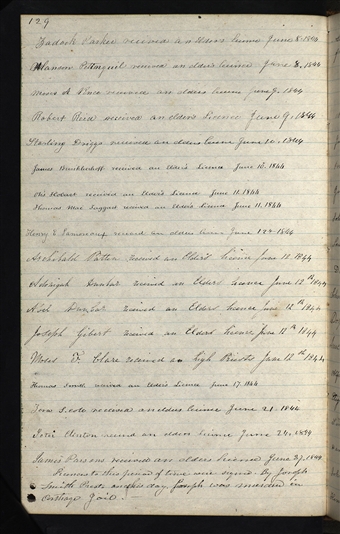 129
Zadock Parker received an Elders Licence June 8. 1844
Alanson Pettingill received an elders licence June 8, 1844
received an elders licence June 9. 1844
Robert Reid received an elder's Licence June 9. 1844
Starling Driggs received an elders licence June 10. 1844
James received an Elder's Licence June 10. 1844
Otis Hobart received an Elder's License June 11. 1844
Thomas received an Elder's License June 11. 1844
Henry E Lamoreaux received an elders licence June 1844
Archibald Patten received an Elders licence June 12. 1844
Dunbar received an Elders licence June 12th 1844
Dunbar received an Elders licence June 12th 1844
Joseph Gibert received an Elders licence June 12th 1844
Moses F. Clare received an high Priests June 12th 1844
Thomas Smith received an Elder's License June 17. 1844
received an elders licence June 21. 1844
received an elders licence June 24. 1844
James Parsons received an elders licence June 27. 1844
Licences to this period of time were signed. By Joseph
Smith Prest. and this day Joseph was murdered in
Carthage Jail.